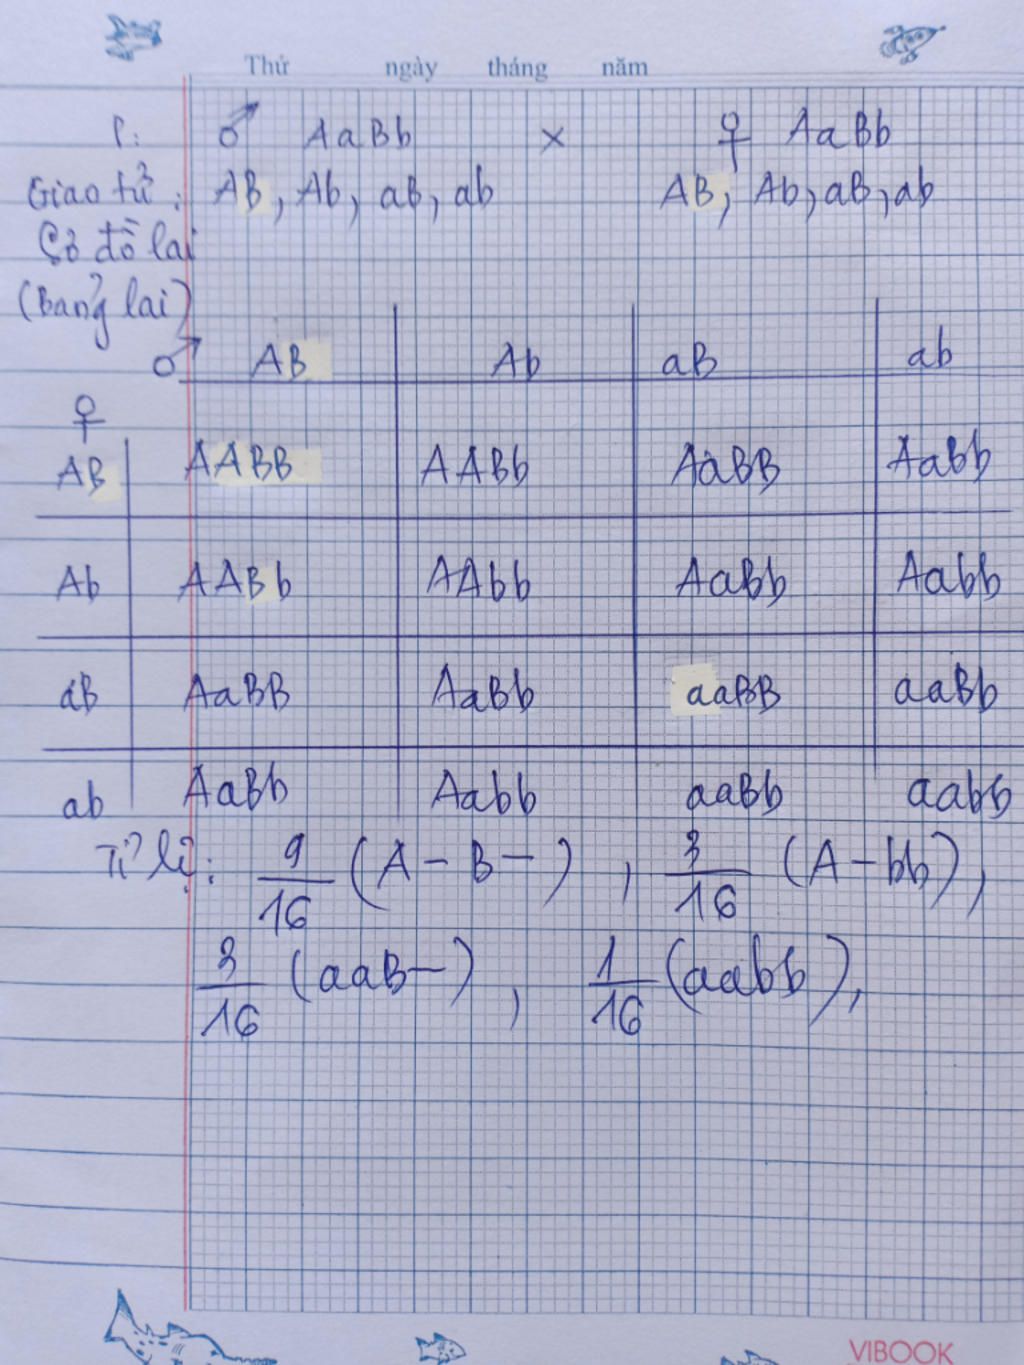 Thứ ngày tháng năm
P: ♂ AaBb × ♀ AaBb
Giao tử: AB, Ab, aB, ab AB, Ab, aB, ab
Sơ đồ lai
(Bảng lai)
♂ AB Ab aB ab
♀
AB AABB AABb AaBB AaBb
Ab AABb AAbb AaBb Aabb
aB AaBB AaBb aaBB aaBb
ab AaBb Aabb aaBb aabb
Tỉ lệ: 9/16 (A-B-), 3/16 (A-bb),
3/16 (aaB-), 1/16 (aabb),
VIBOOK